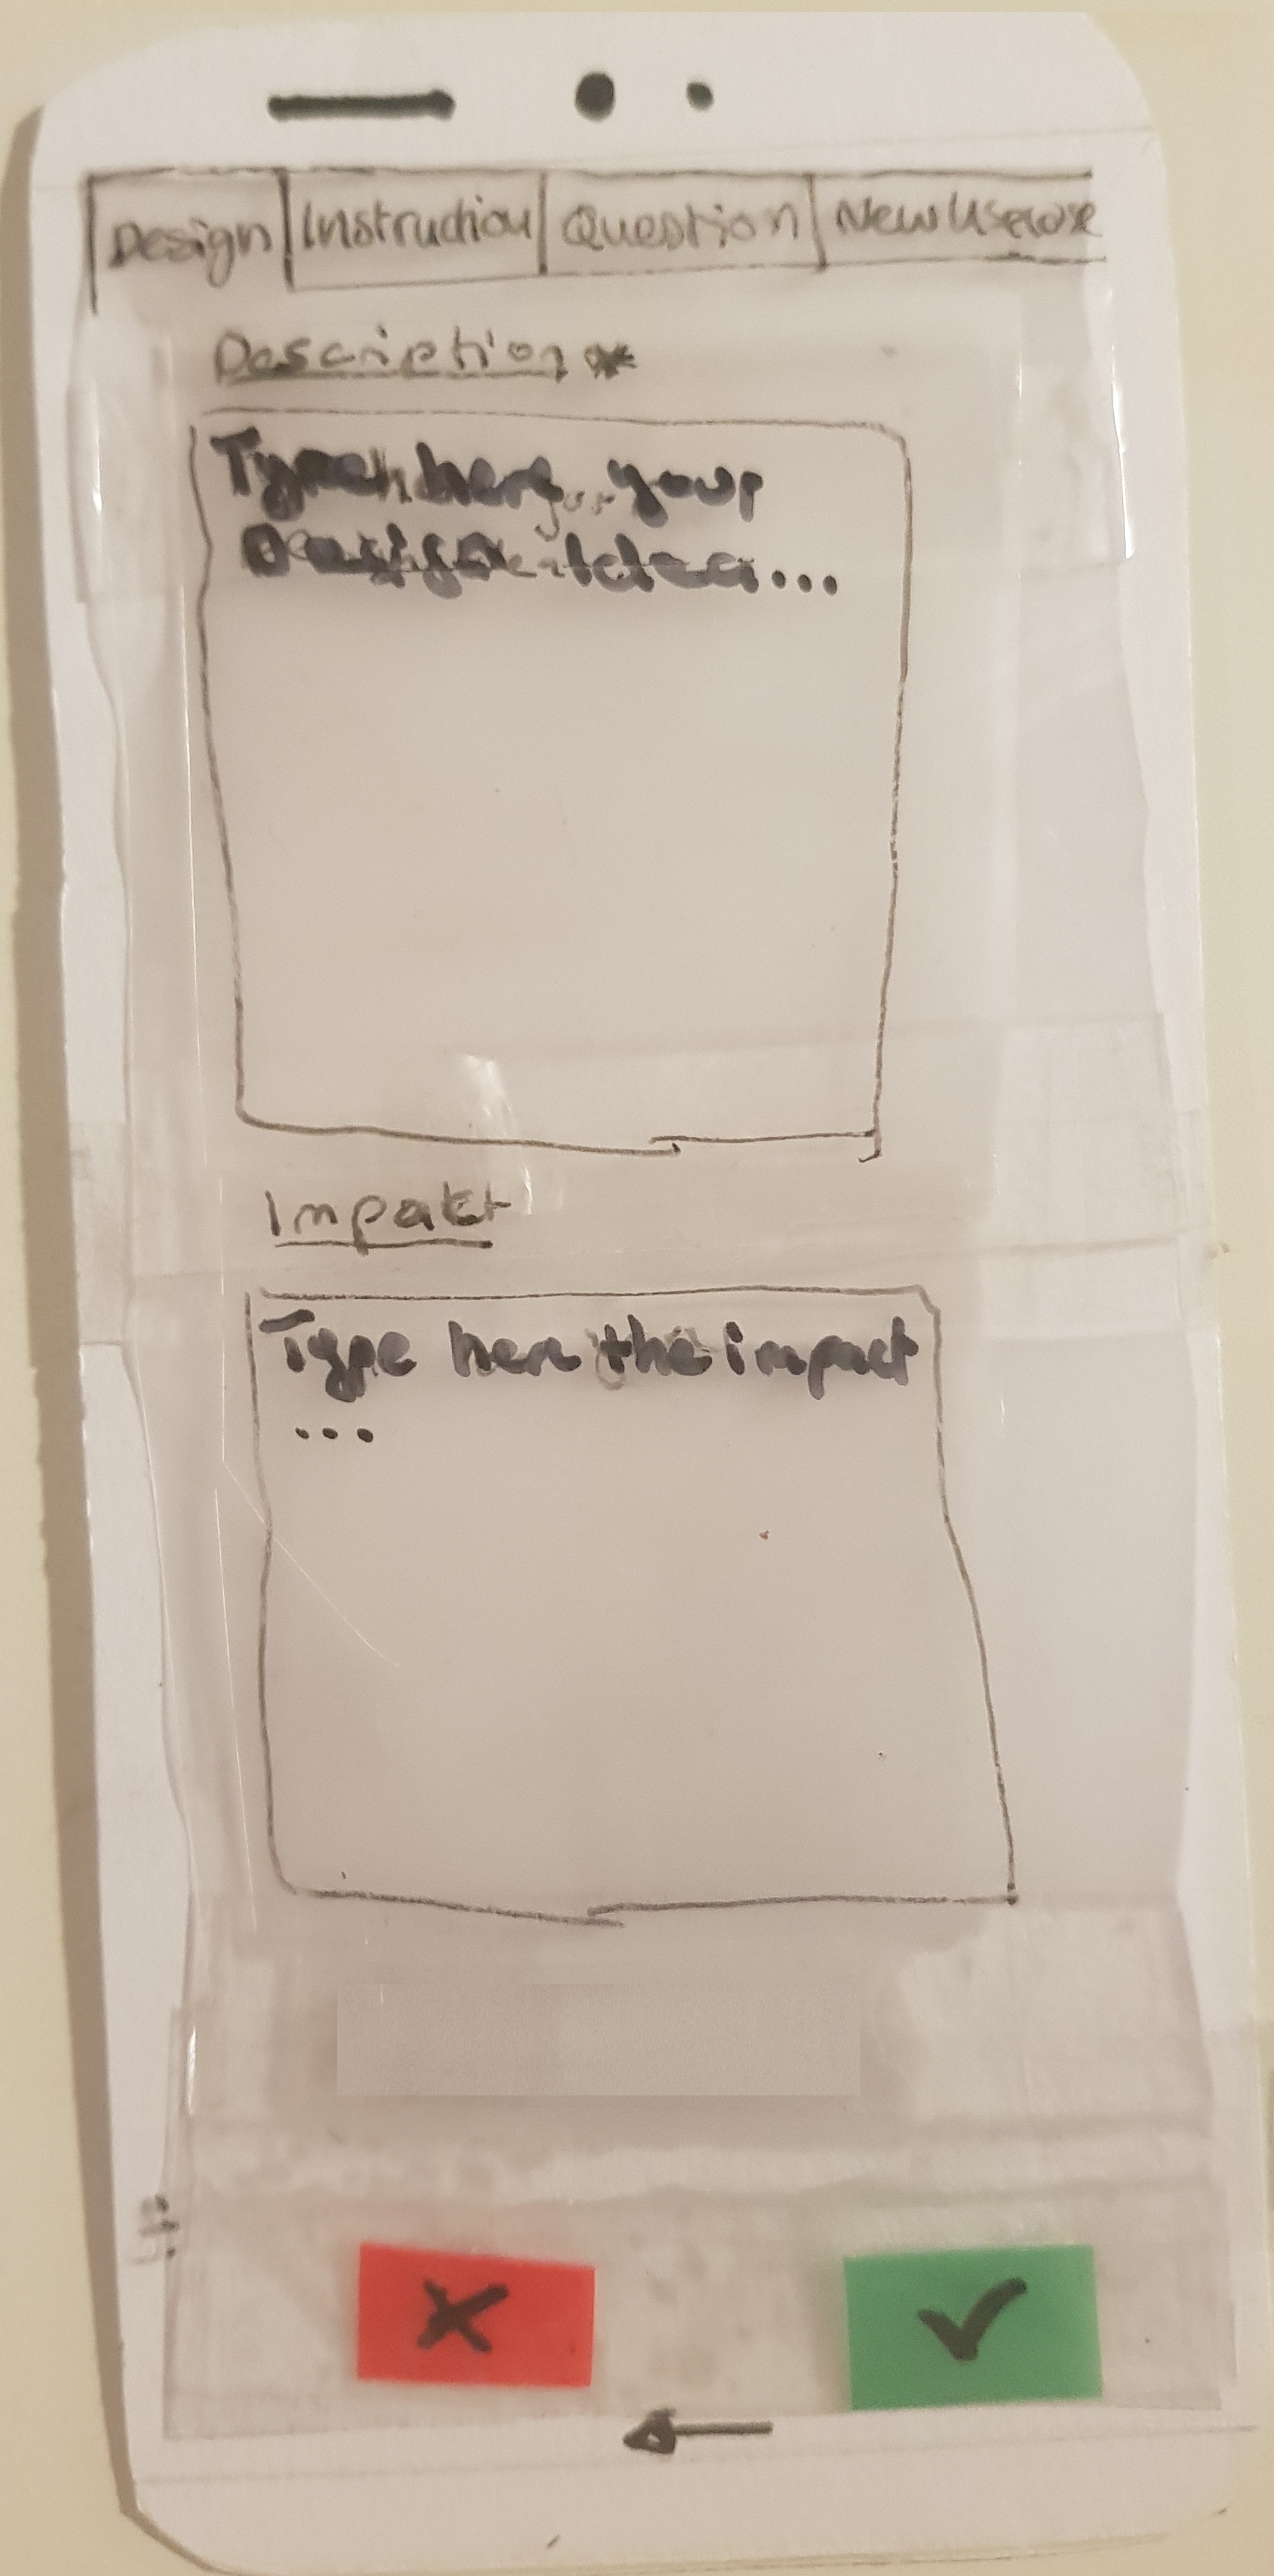 Design Instruction Question New Usecase
Description*
Type here your
Design Idea...
Impakt
Type here the impact
...